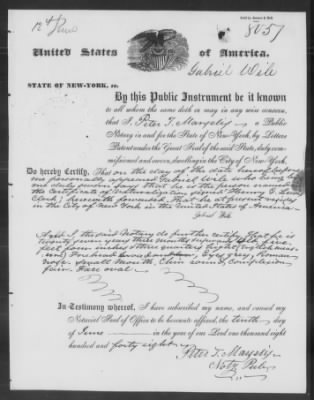 8057
United States of America.
Gabriel Wile
STATE OF NEW-YORK, ss.
By this Public Instrument be it known
to all whom the same doth or may in any wise concern,
that I, Peter T. a Public
Notary in and for the State of New-York, by Letters
Patent under the Great Seal of the said State, duly com-
missioned and sworn, dwelling in the City of New-York.
Do hereby Certify, That on the day of the date hereof before
me personally appeared Gabriel Wile
and duly sworn says that he is the person named in
the Certificate of Naturalization
herewith forwarded, that he at present resides
in the City of New York in the United States of America
Gabriel Wile
And I the said Notary do further certify that he is
twenty seven years three months
feet
eyes grey, Roman
nose, small mouth, Chin round, complexion
fair, Face oval
In Testimony whereof, I have subscribed my name, and caused my
Notarial Seal of Office to be hereunto affixed, the tenth day
of June in the year of our Lord one thousand eight
hundred and forty eight
Peter T.